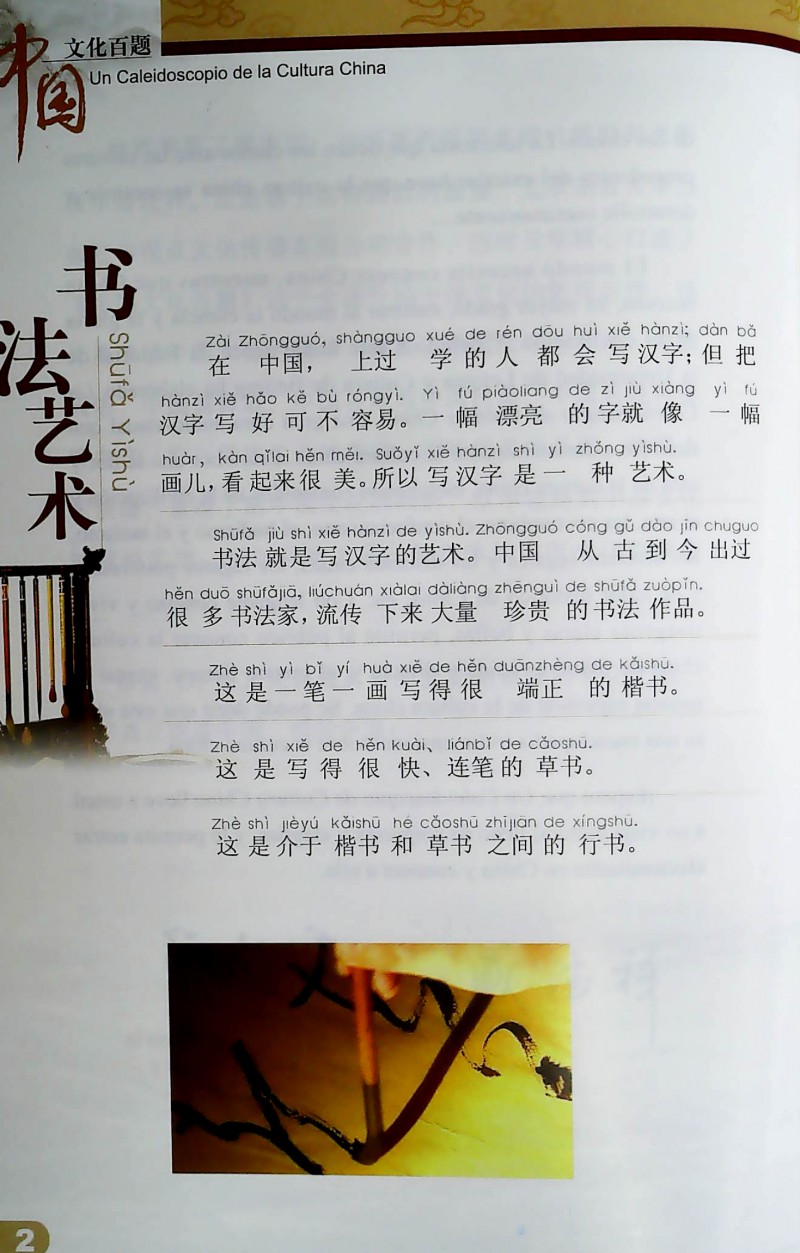 中国
文化百题
Un Caleidoscopio de la Cultura China
书法艺术
Shūfǎ Yìshù
Zài Zhōngguó, shàngguo xué de rén dōu huì xiě hànzì; dàn bǎ
在 中国, 上过 学 的 人 都 会 写 汉字; 但 把
hànzì xiě hǎo kě bù róngyì. Yì fú piàoliang de zì jiù xiàng yì fú
汉字 写 好 可 不 容易。一 幅 漂亮 的 字 就 像 一 幅
huàr, kàn qǐlai hěn měi. Suǒyǐ xiě hànzì shì yì zhǒng yìshù.
画儿, 看 起来 很 美。所以 写 汉字 是 一 种 艺术。
Shūfǎ jiù shì xiě hànzì de yìshù. Zhōngguó cóng gǔ dào jīn chuguo
书法 就 是 写 汉字 的 艺术。 中国 从 古 到 今 出过
hěn duō shūfǎjiā, liúchuán xiàlai dàliàng zhēnguì de shūfǎ zuòpǐn.
很 多 书法家, 流传 下来 大量 珍贵 的 书法 作品。
Zhè shì yì bǐ yí huà xiě de hěn duānzhèng de kǎishū.
这 是 一 笔 一 画 写 得 很 端正 的 楷书。
Zhè shì xiě de hěn kuài、liánbǐ de cǎoshū.
这 是 写 得 很 快、连笔 的 草书。
Zhè shì jièyú kǎishū hé cǎoshū zhījiān de xíngshū.
这 是 介于 楷书 和 草书 之间 的 行书。
2